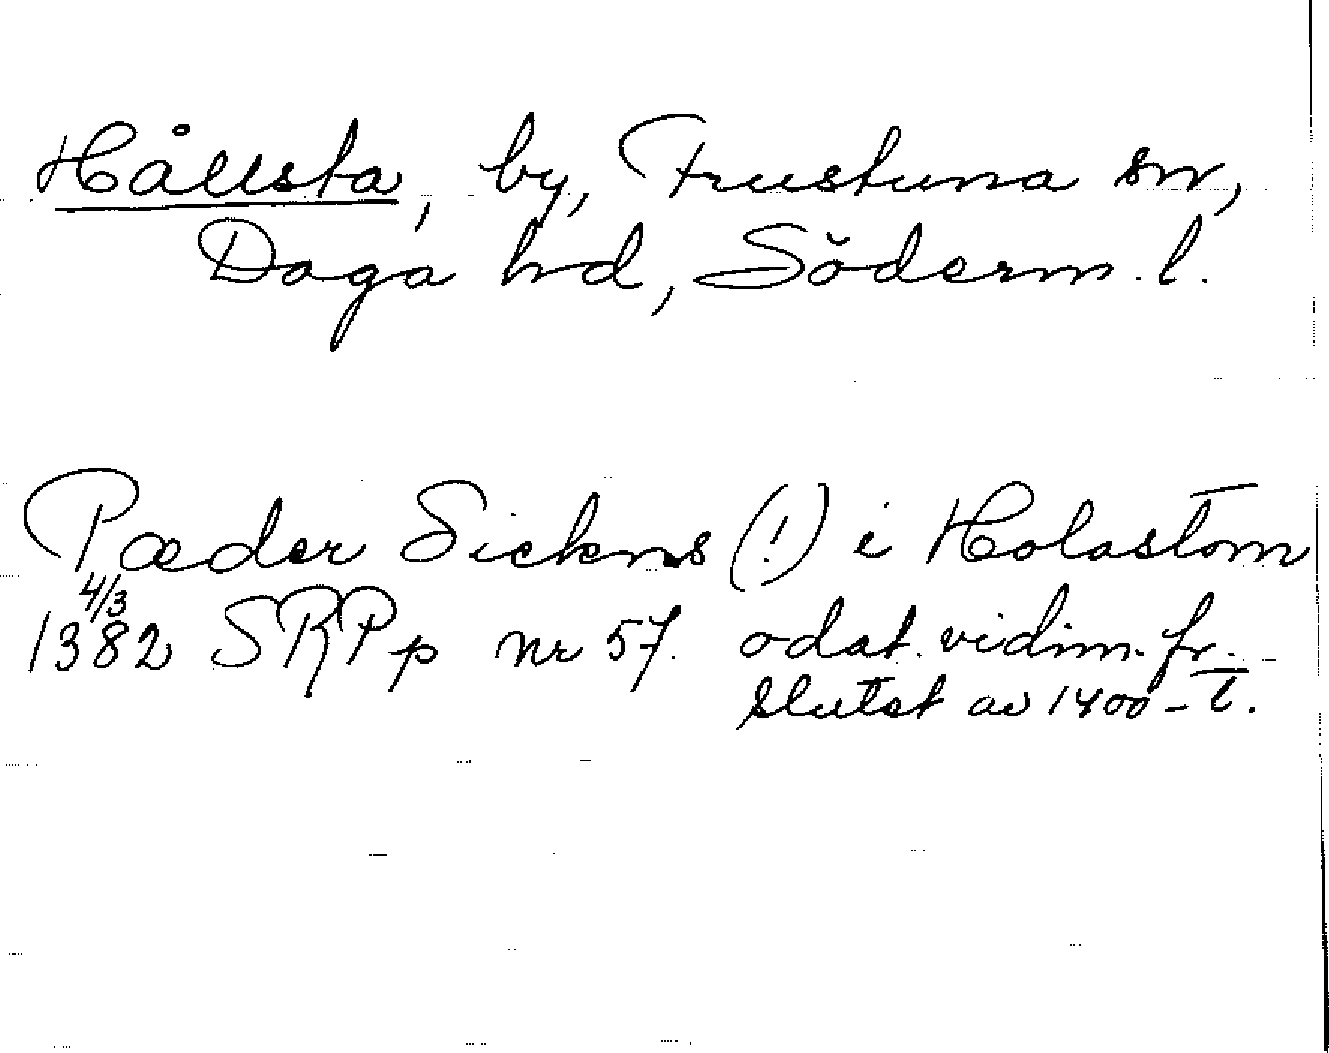 Hållsta, by, Frustuna sn,
Daga hd, Söderm. l.
Pæder Sickms (!) i Holastom
4/3
1382 SRPp nr 57. odat. vidim. fr.
slutet av 1400-t.